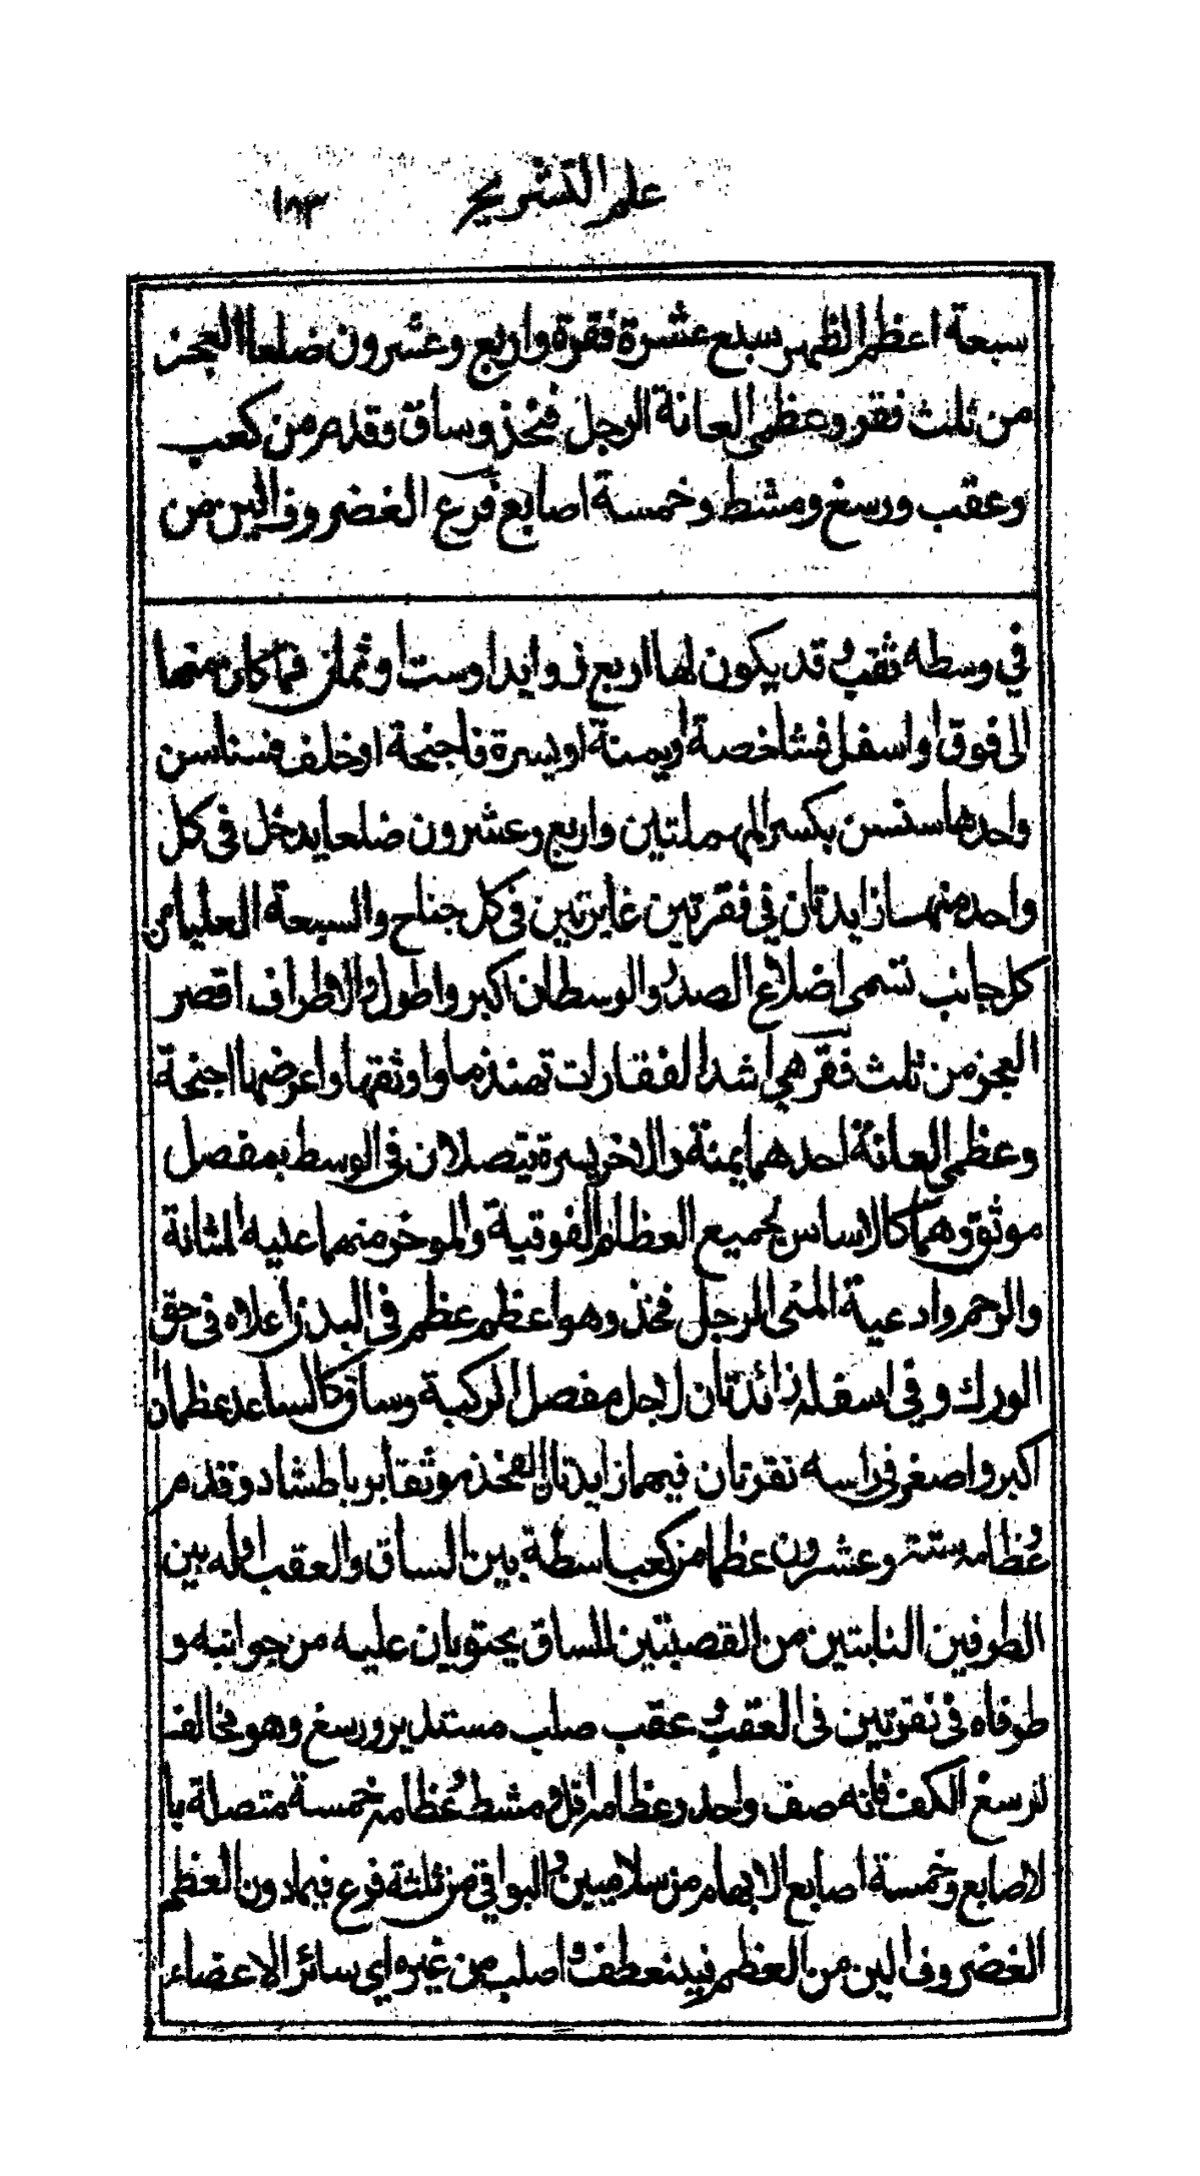 علم التشريح ١٨٣
سبعة اعظم الظهر سبع عشرة فقرة واربع وعشرون ضلعا العجز
من ثلث فقر وعظمى العانة الرجل فخذ وساق وقدم من كعب
وعقب ورسغ ومشط وخمسة اصابع فرع الغضروف الين من
في وسطه ثقب وقد يكون لها اربع زوايد او ست او ثمان فما كان منها
الى فوق او اسفل فشاخصة او يمنة او يسرة فاجنحة او خلف فسناسن
واحدها سنسن بكسر المهملتين واربع وعشرون ضلعا يدخل في كل
واحد منها زايدتان في فقرتين غايرتين في كل جناح والسبعة العليا من
كل جانب تسمى اضلاع الصدر والوسطان اكبر واطول والاطراف اقصر
العجز من ثلث فقر هي اشد الفقارات تهندما واوثقها واعرضها اجنحة
وعظمى العانة احدهما يمنة والاخر يسرة يتصلان في الوسط بمفصل
موثق وهما كالاساس لجميع العظام الفوقية والموخر منهما عليه المثانة
والرحم وادعية المنى الرجل فخذ وهو اعظم عظم في البدن اعلاه في حق
الورك وفي اسفله زائدتان لاجل مفصل الركبة وساق كالساعد عظمان
اكبر واصغر في راسه نقرتان فيهما زايدتان الفخذ موثقا برباط شاد وقدم
عُظامه ستة وعشرون عظما من كعب اسطة بين الساق والعقب وله بين
الطرفين النابتين من القصبتين للساق يحتويان عليه من جوانبه و
طرفاه في نقرتين في العقب وعقب صلب مستدير ورسغ وهو مخالف
لرسغ الكف فانه صف واحد وعظامه اقل ومشط عُظامه خمسة متصلة با
لاصابع وخمسة اصابع الابهام من سلاميين والبواقي من ثلثة فرع فيما دون العظم
الغضروف الين من العظم فينعطف واصلب من غيره اي سائر الاعضاء